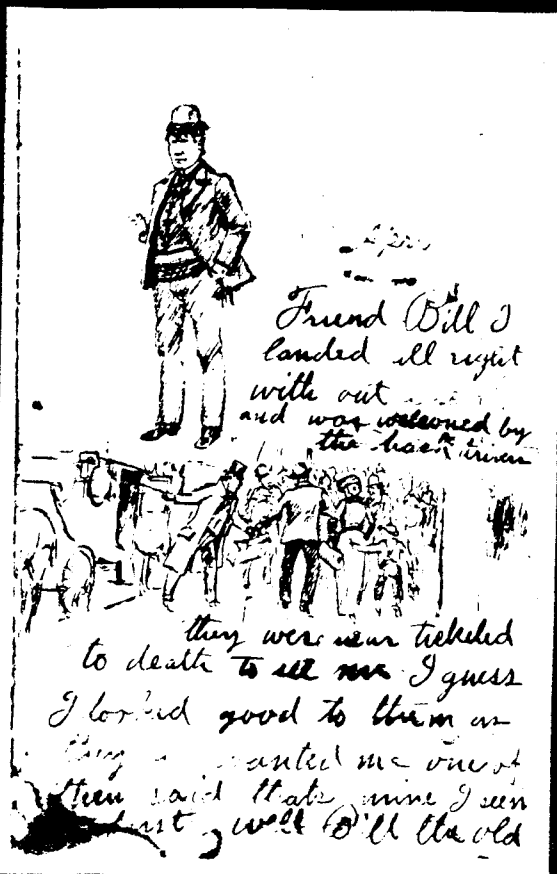 Friend Bill I
landed all right
with out
and was welcomed by
the hack drivers
they were near tickeled
to death to see me I guess
I looked good to them as
they wanted me one of
them said thats mine I seen
first well Bill the old